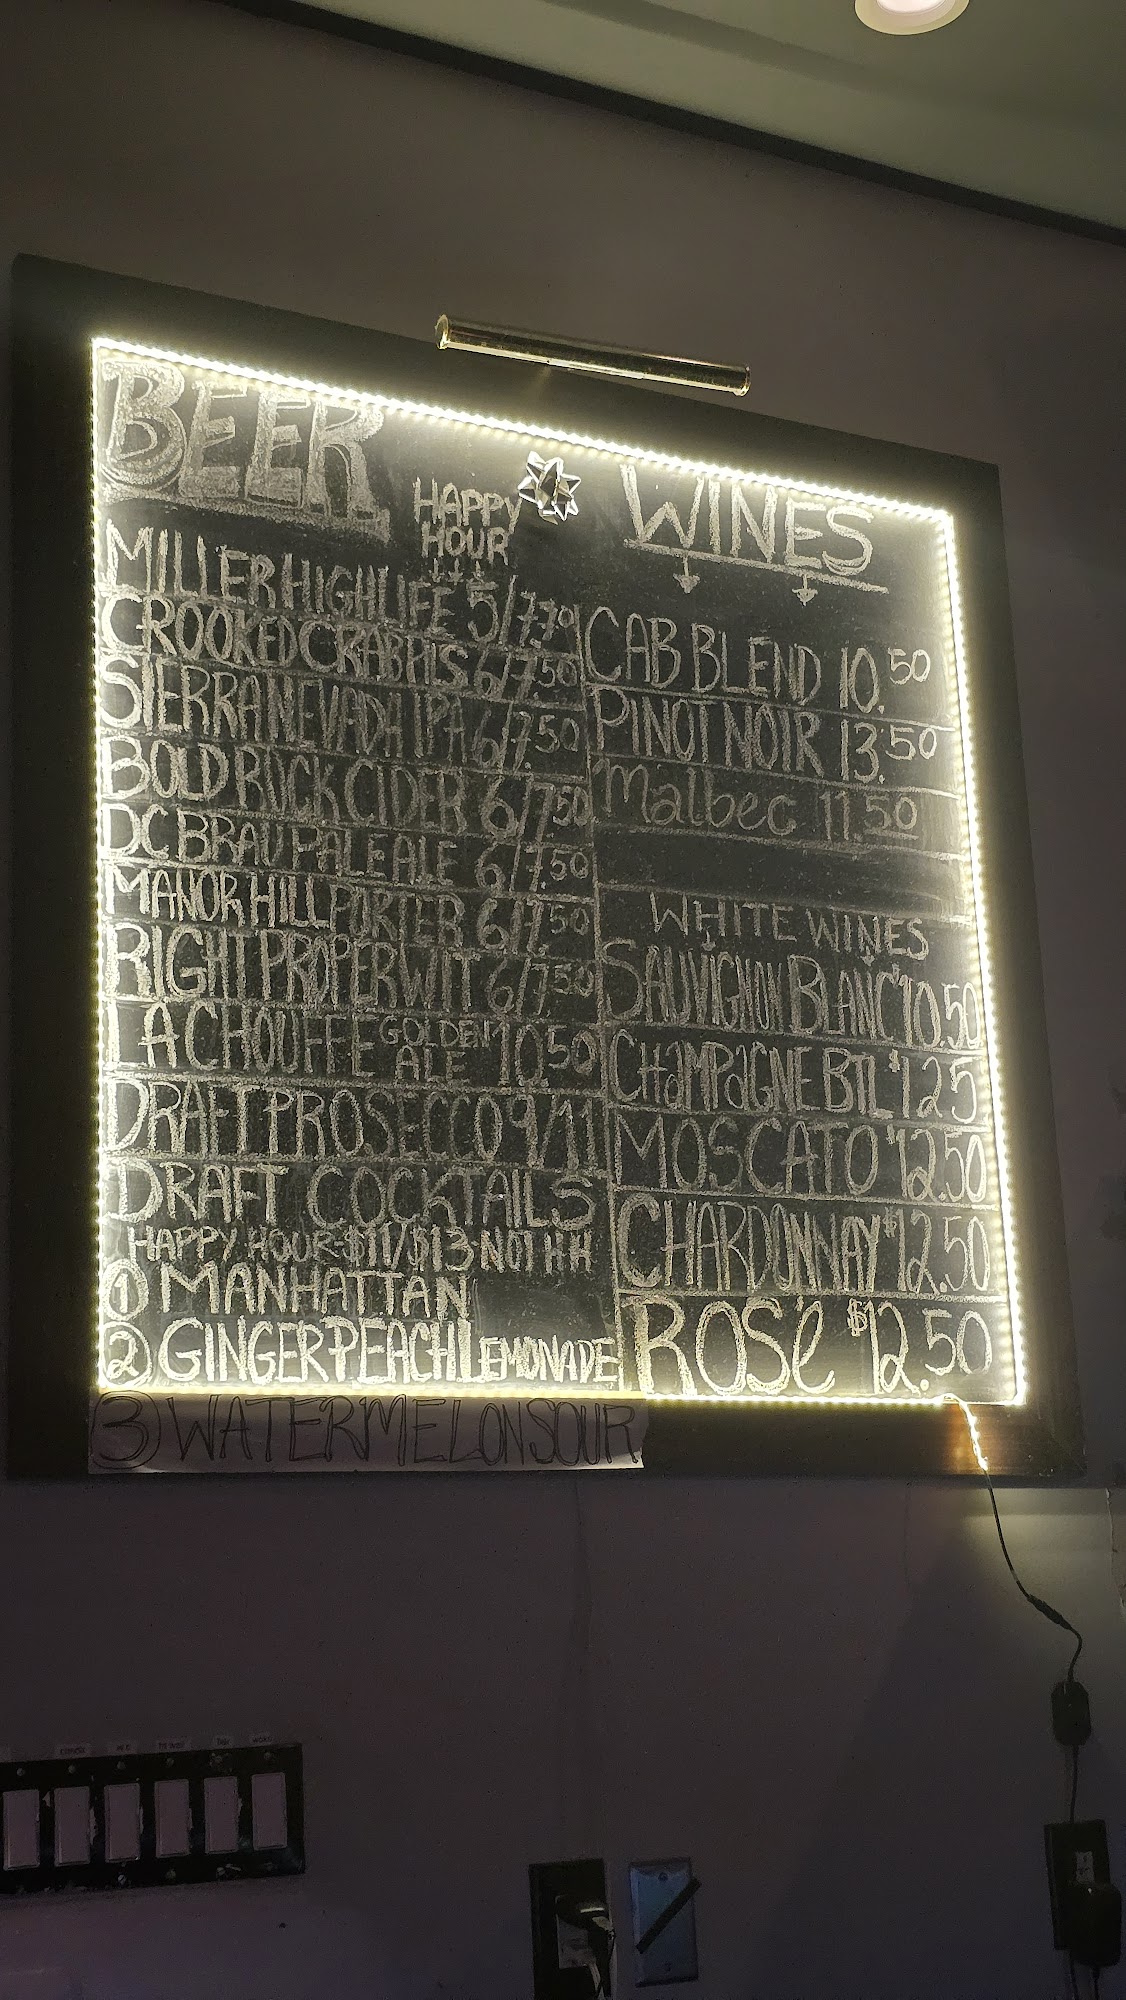 BEER
HAPPY
HOUR
MILLER HIGH LIFE 5/7.70
CROOKED CRAB PILS 6/7.50
SIERRA NEVADA IPA 6/7.50
BOLD ROCK CIDER 6/7.50
DC BRAU PALE ALE 6/7.50
MANOR HILL PORTER 6/7.50
RIGHT PROPER WIT 6/7.50
LA CHOUFFE GOLDEN ALE 10.50
DRAFT PROSECCO 9/11
DRAFT COCKTAILS
HAPPY HOUR $11/$13 NOT HH
1 MANHATTAN
2 GINGER PEACH LEMONADE
3 WATERMELON SOUR
WINES
CAB BLEND 10.50
PINOT NOIR 13.50
Malbec 11.50
WHITE WINES
SAUVIGNON BLANC $10.50
CHAMPAGNE BTL $125
MOSCATO $12.50
CHARDONNAY $12.50
ROSé $12.50